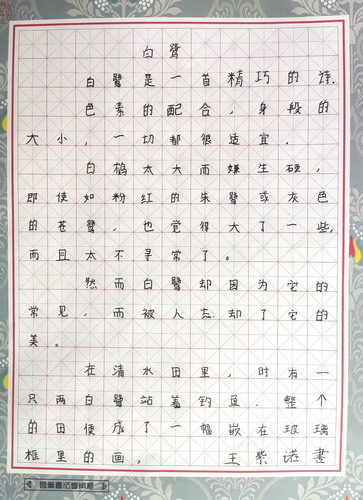 白鹭
白鹭是一首精巧的诗.
色素的配合,身段的
大小,一切都很适宜.
白鹤太大而嫌生硬,
即使如粉红的朱鹭或灰色
的苍鹭,也觉得大了一些,
而且太不寻常了。
然而白鹭却因为它的
常见,而被人忘却了它的
美。
在清水田里,时有一
只两白鹭站着钓鱼.整个
的田便成了一幅嵌在玻璃
框里的画. 王紫诺書